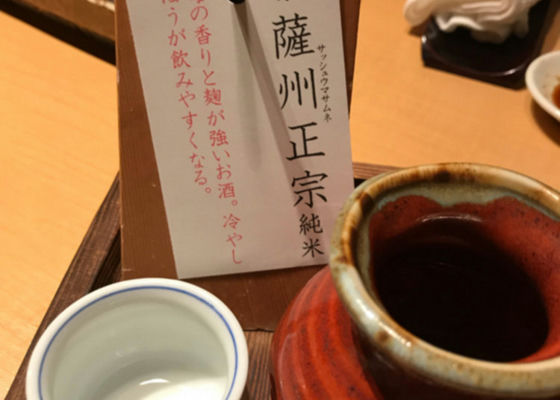 薩州正宗純米
サッシュウマサムネ
の香りと麹が強いお酒。冷やし
ほうが飲みやすくなる。